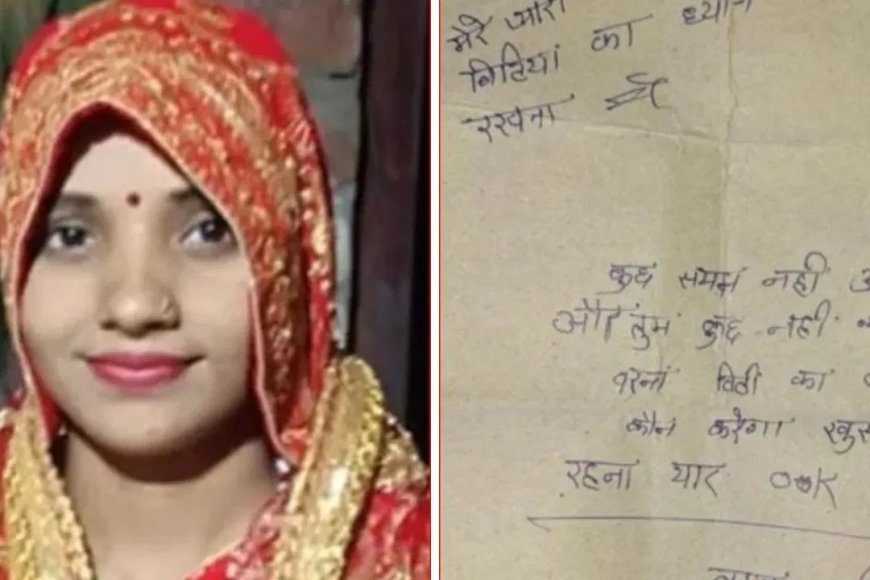 मेरे प्यारी
बिटियां का ध्यान
रखना
कुछ समझ नही
और तुम कुछ नही
वरना बिटी का
कौन करेगा खुस
रहना यार ook